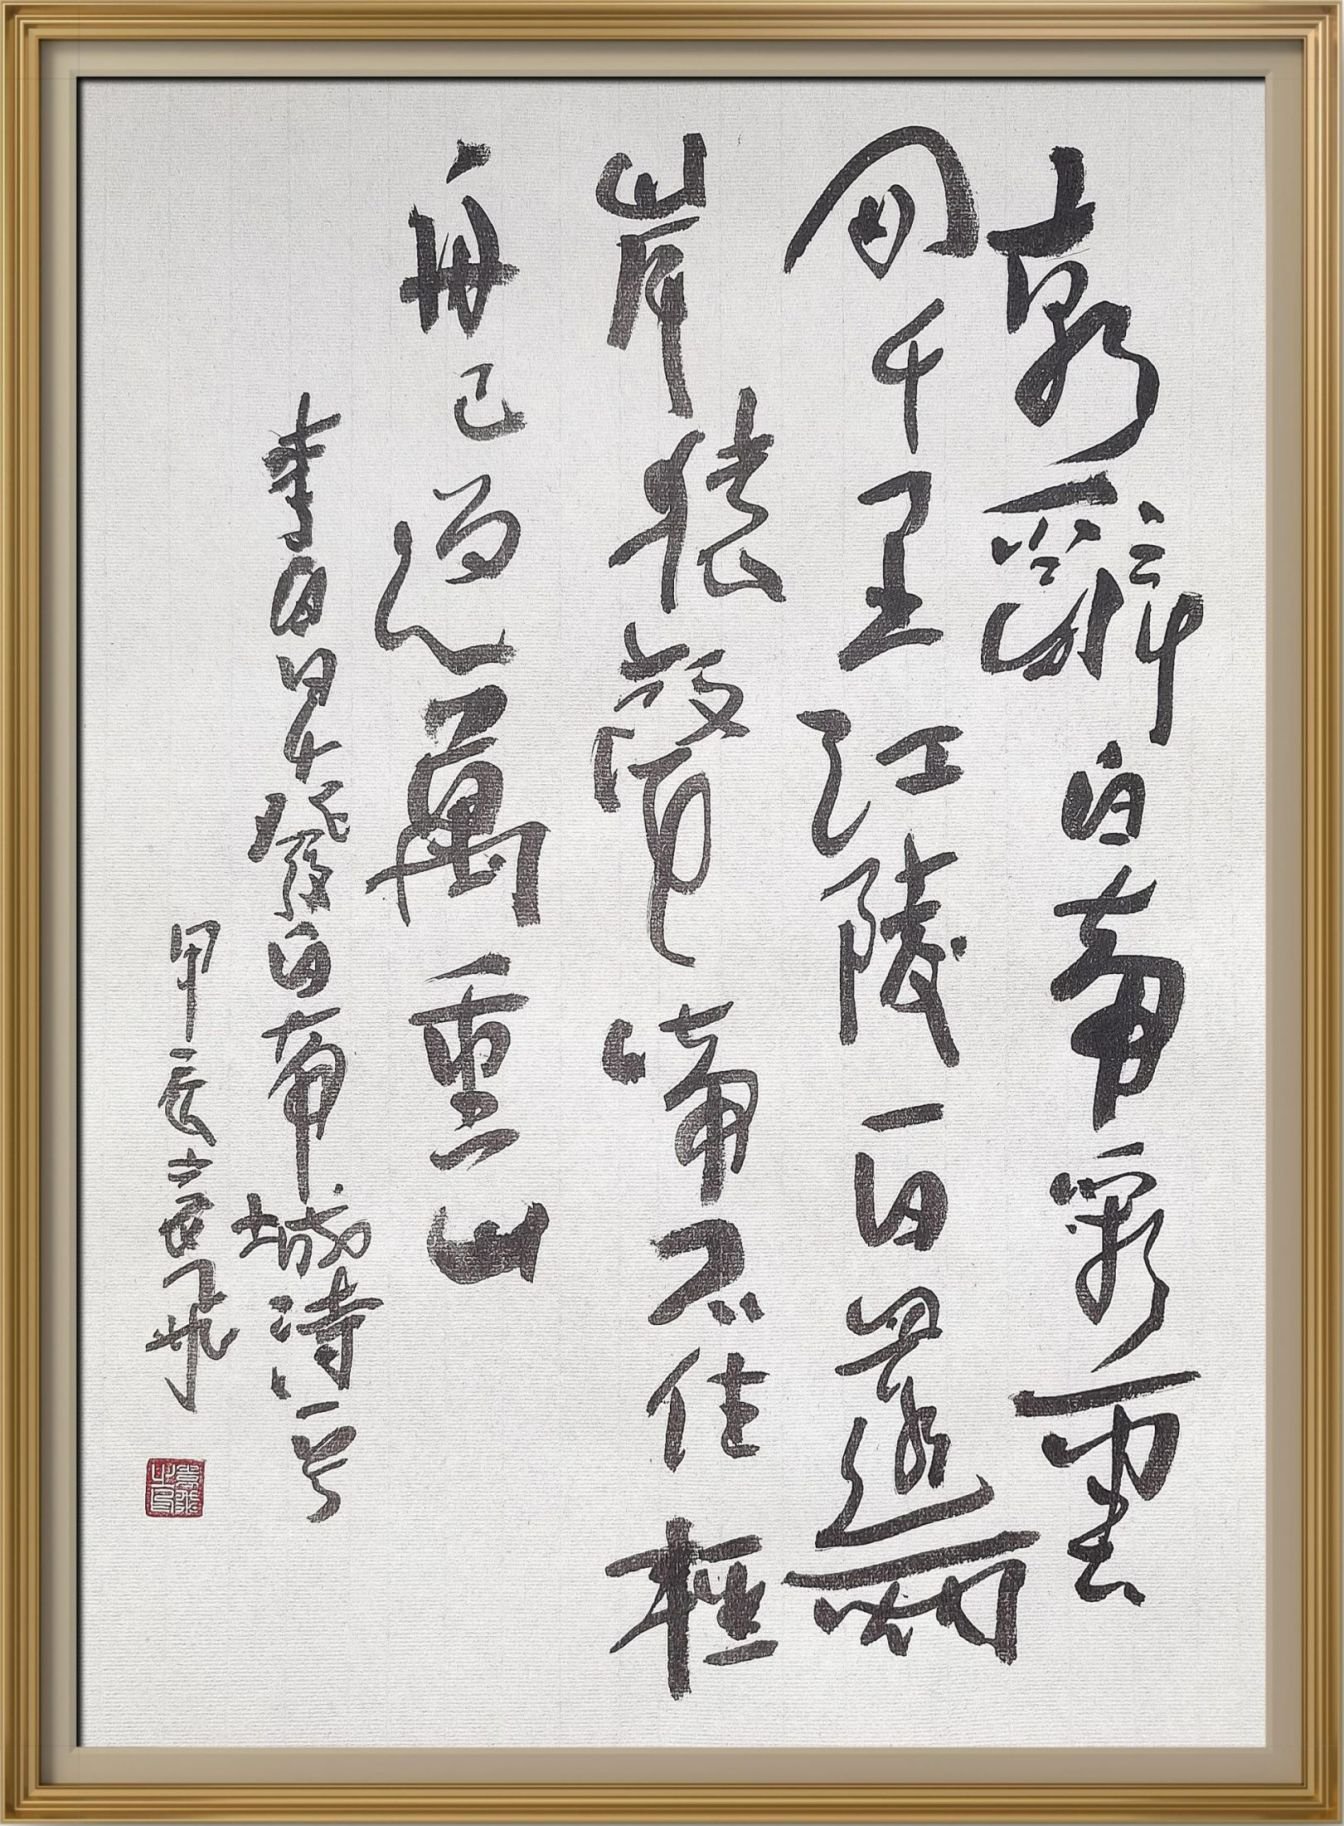 朝辭白帝彩雲
間千里江陵一日還兩
岸猿聲啼不住輕
舟已過萬重山
李白早發白帝城詩一首
甲辰